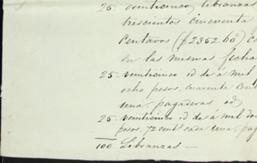 25 veinticinco, libranzas
trescientos cincuenta
centavos ($2352.60)
en las mismas fechas
25 veinticinco id de á mil
ocho pesos, cuarenta
una, pagaderas id
25 veinticinco id de á mil dos
pesos, 72 cent cada una, pag
100 Libranzas